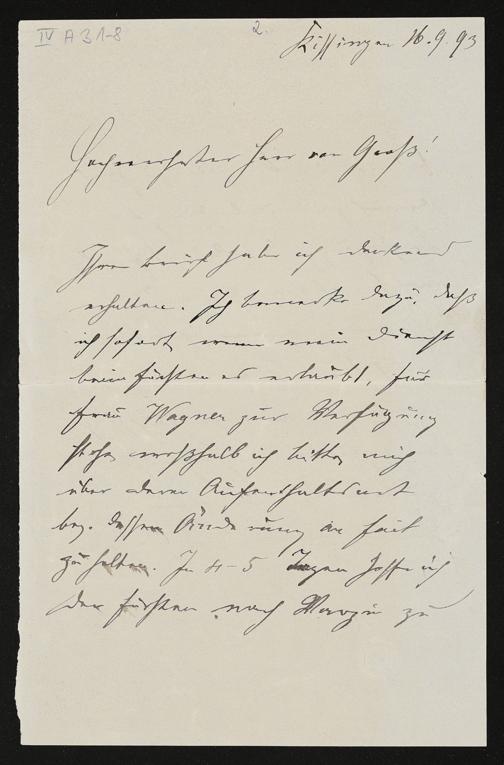 IV A 31-8
2.
Kissingen 16.9.93
Hochverehrter Herr von Groß!
Ihren Brief habe ich dankend
erhalten. Ich bemerke dazu, daß
ich sofort, wenn mein Dienst
beim Fürsten es erlaubt, für
Frau Wagner zur Verfügung
stehe, weßhalb ich bitte, mich
über deren Aufenthaltsort
bez. dessen Änderung au fait
zu halten. In 4-5 Tagen hoffe ich
den Fürsten nach Varzin zu